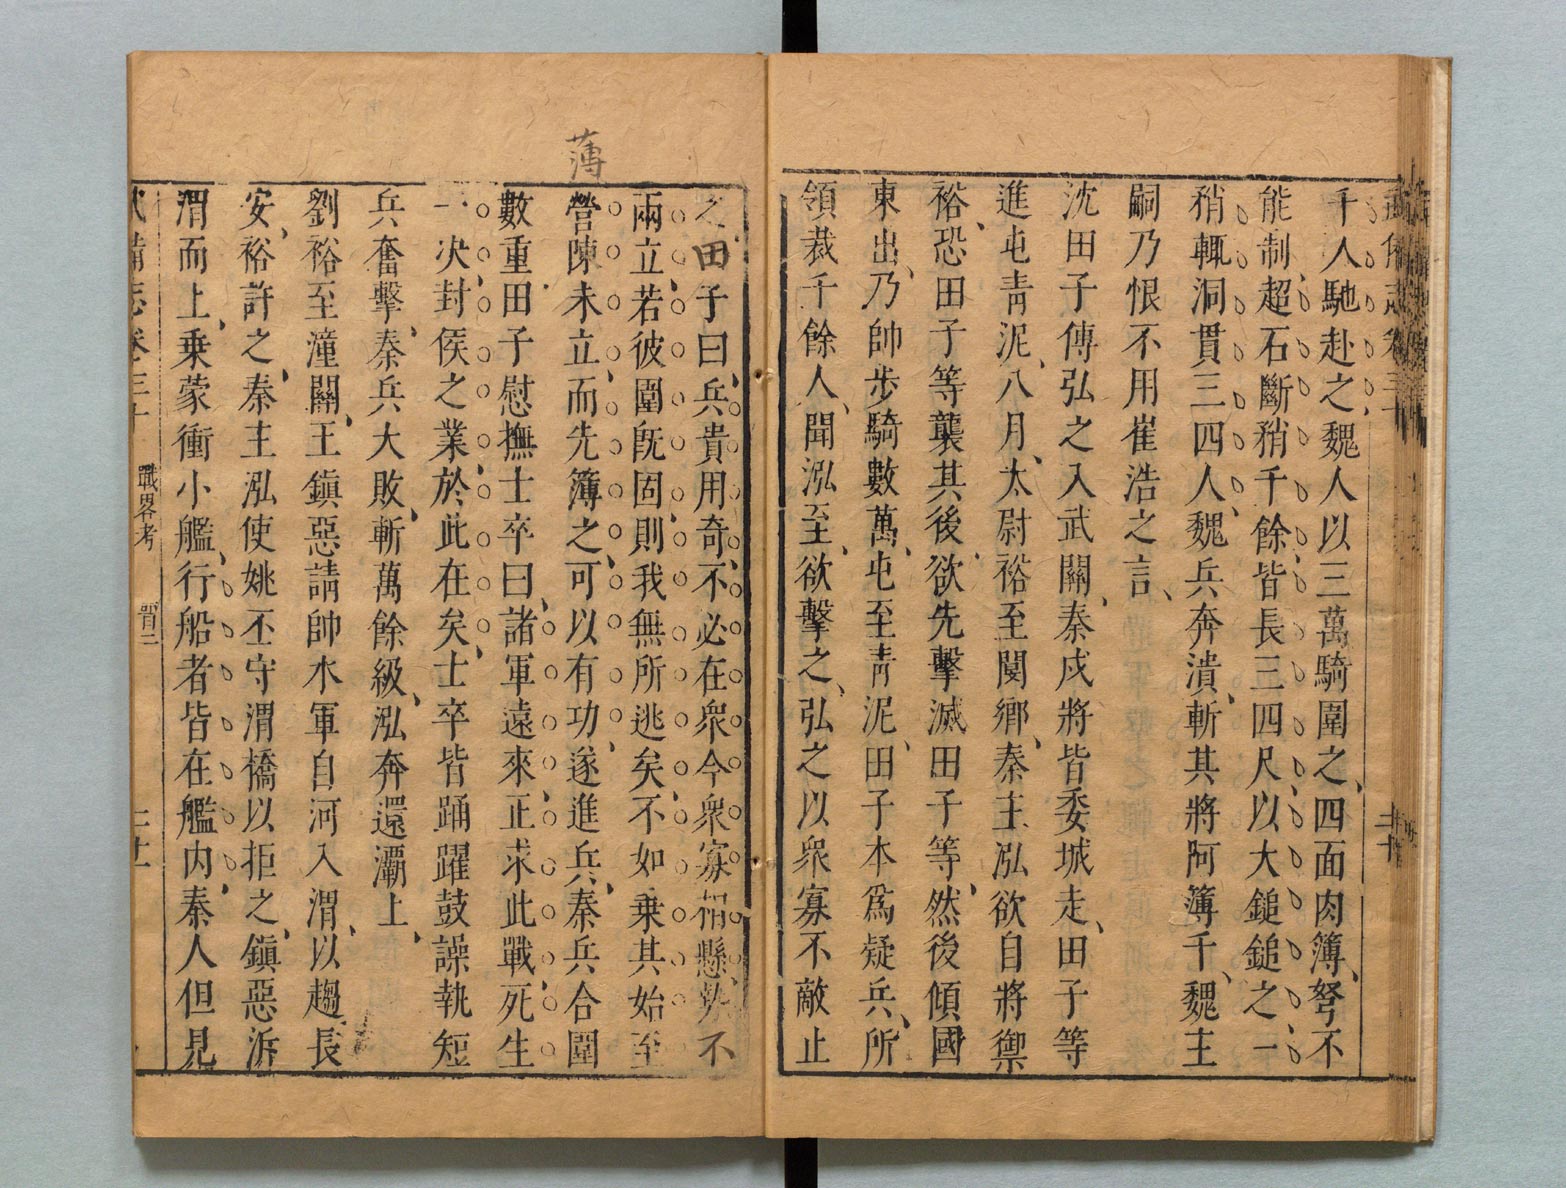 千人馳赴之魏人以三萬騎圍之四面肉簿弩不
能制超石斷矟千餘皆長三四尺以大鎚鎚之一
矟輒洞貫三四人魏兵奔潰斬其將阿簿千魏主
嗣乃恨不用崔浩之言
沈田子傳弘之入武關秦戍將皆委城走田子等
進屯青泥八月太尉裕至閿鄉秦主泓欲自將禦
裕恐田子等襲其後欲先擊滅田子等然後傾國
東出乃帥步騎數萬屯至青泥田子本為疑兵所
領裁千餘人聞泓至欲擊之弘之以衆寡不敵止
之田子曰兵貴用奇不必在衆今衆寡相懸勢不
兩立若彼圍旣固則我無所逃矣不如乗其始至
營陳未立而先簿之可以有功遂進兵秦兵合圍
數重田子慰撫士卒曰諸軍遠來正求此戰死生
一决封侯之業於此在矣士卒皆踊躍鼓譟執短
兵奮擊秦兵大敗斬萬餘級泓奔還灞上
劉裕至潼關王鎮惡請帥水軍自河入渭以趨長
安裕許之秦主泓使姚丕守渭橋以拒之鎮惡泝
渭而上乗蒙衝小艦行船者皆在艦内秦人但見
薄
武備志卷三十
戰畧考
晉二